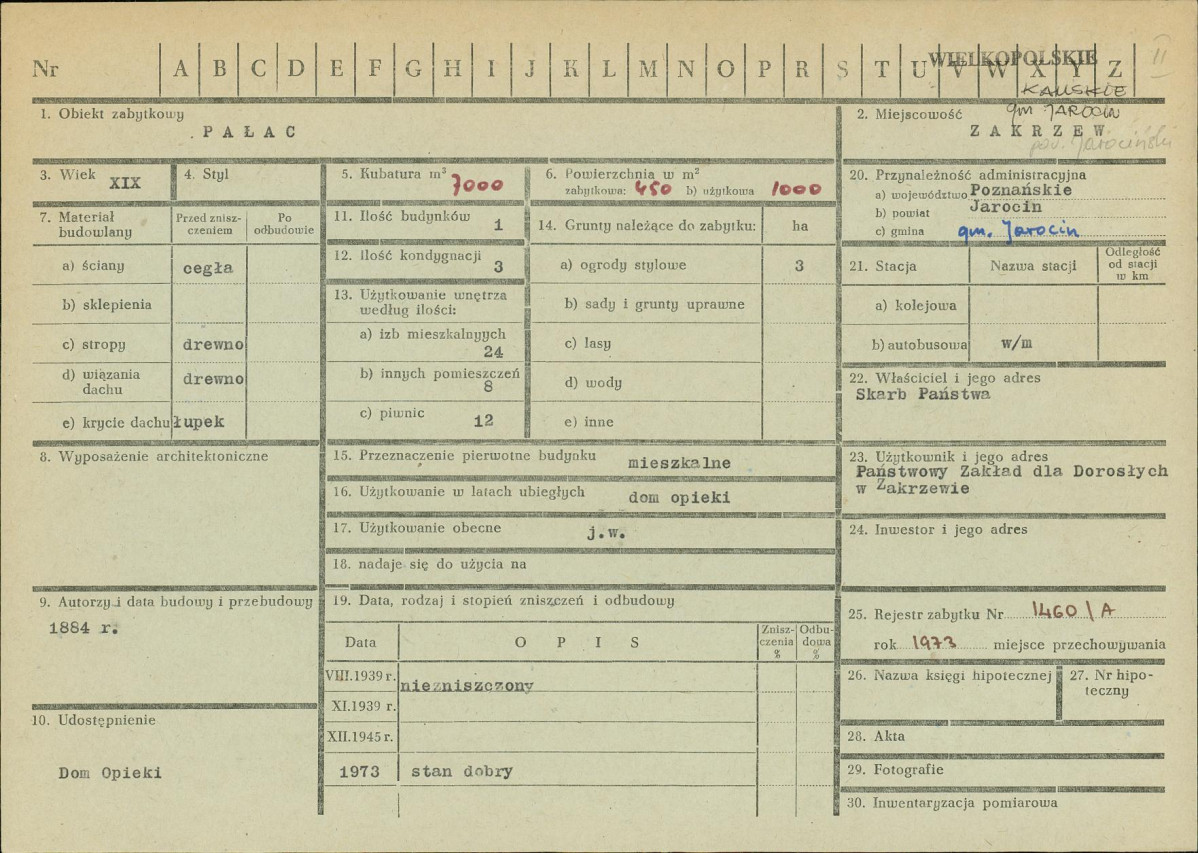 Nr A B C D E F G H I J K L M N O P R S T U V W X Y Z II
WIELKOPOLSKIE
KALISKIE
gm JAROCIN
1. Obiekt zabytkowy
PAŁAC
2. Miejscowość
ZAKRZEW
pow. Jarociński
3. Wiek XIX
4. Styl
5. Kubatura m³ 7000
6. Powierzchnia w m²
zabytkowa: 450 b) użytkowa 1000
20. Przynależność administracyjna
a) województwo Poznańskie
b) powiat Jarocin
c) gmina gm. Jarocin
7. Materiał budowlany
Przed zniszczeniem
Po odbudowie
a) ściany cegła
b) sklepienia
c) stropy drewno
d) wiązania dachu drewno
e) krycie dachu łupek
11. Ilość budynków 1
12. Ilość kondygnacji 3
13. Użytkowanie wnętrza
według ilości:
a) izb mieszkalnyych
24
b) innych pomieszczeń
8
c) piwnic 12
14. Grunty należące do zabytku: ha
a) ogrody stylowe 3
b) sady i grunty uprawne
c) lasy
d) wody
e) inne
21. Stacja
Nazwa stacji
Odległość
od stacji
w km
a) kolejowa
b) autobusowa w/m
22. Właściciel i jego adres
Skarb Państwa
8. Wyposażenie architektoniczne
15. Przeznaczenie pierwotne budynku mieszkalne
16. Użytkowanie w latach ubiegłych dom opieki
17. Użytkowanie obecne j.w.
18. nadaje się do użycia na
23. Użytkownik i jego adres
Państwowy Zakład dla Dorosłych
w Zakrzewie
24. Inwestor i jego adres
9. Autorzy i data budowy i przebudowy
1884 r.
19. Data, rodzaj i stopień zniszczeń i odbudowy
Data
OPIS
Znisz-
czenia
%
Odbu-
dowa
%
VIII.1939 r. niezniszczony
XI.1939 r.
XII.1945 r.
1973 stan dobry
25. Rejestr zabytku Nr 1460/A
rok 1973 miejsce przechowywania
26. Nazwa księgi hipotecznej
27. Nr hipo-
teczny
10. Udostępnienie
Dom Opieki
28. Akta
29. Fotografie
30. Inwentaryzacja pomiarowa